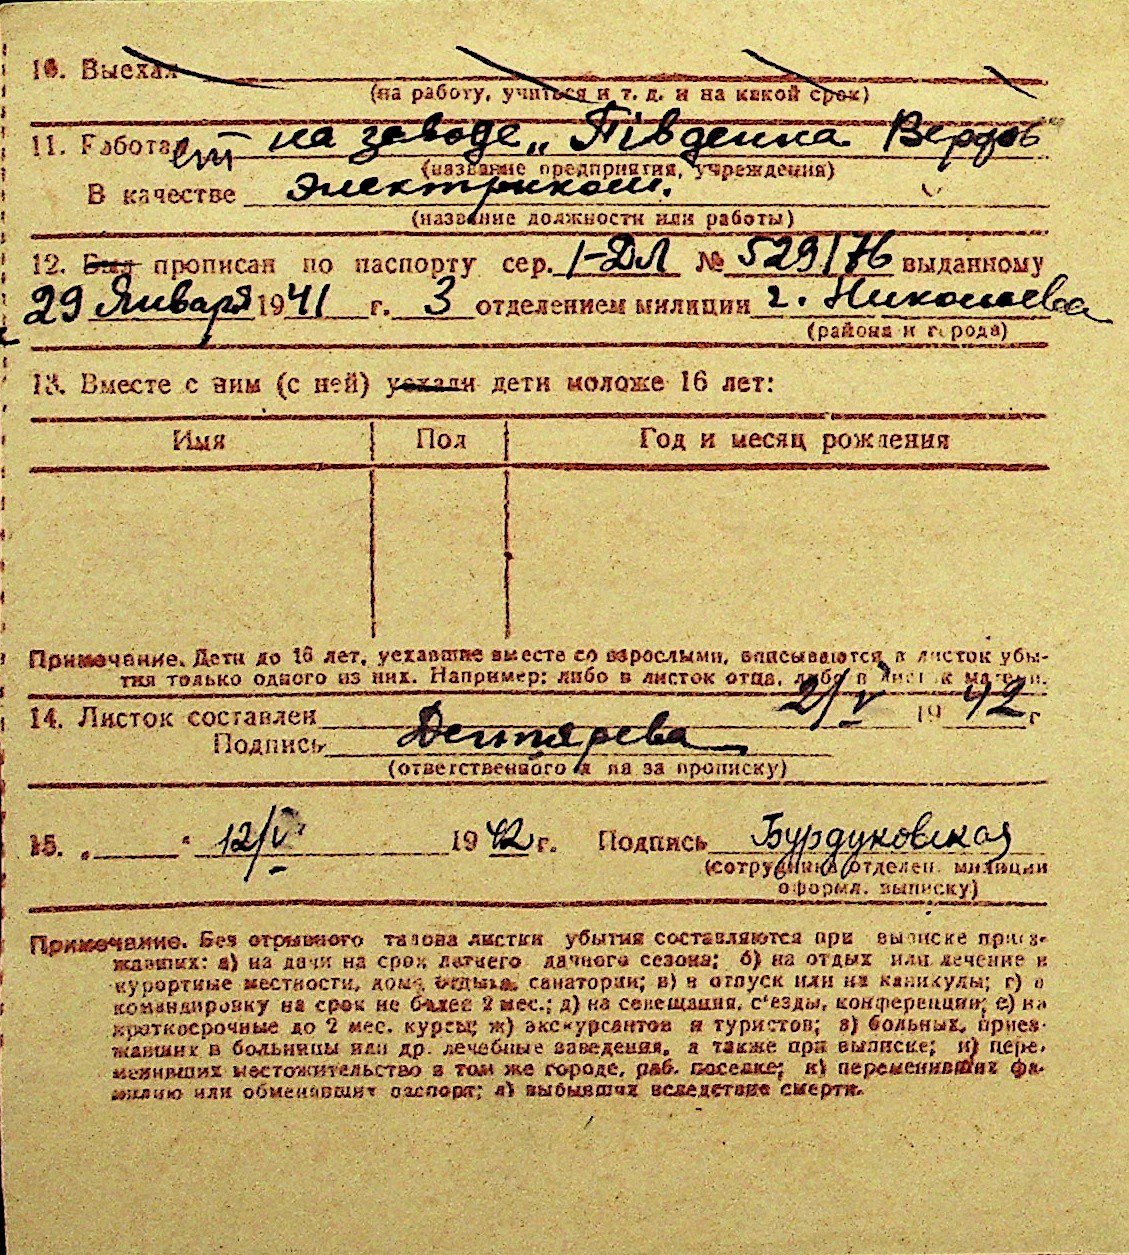 10. Выехал
(на работу, учиться и т. д. и на какой срок)
11. Работает на заводе „Південна Верфь"
(название предприятия, учреждения)
В качестве электриком.
(название должности или работы)
12. Был прописан по паспорту сер. I-ДЛ № 529176 выданному
29 Января 1941 г. 3 отделением милиции г. Николаева
(района и города)
13. Вместе с ним (с ней) уехали дети моложе 16 лет:
Имя Пол Год и месяц рождения
Примечание. Дети до 16 лет, уехавшие вместе со взрослыми, вписываются в листок убы-
тия только одного из них. Например: либо в листок отца, либо в листок матери.
14. Листок составлен 2/V 1942 г
Подпись Дегтярева
(ответственного л на за прописку)
15. „ " 12/V 1942 г. Подпись Бурдуковская
(сотрудника отделен. милиции
оформл. выписку)
Примечание. Без отрывного талона листки убытия составляются при выписке приез-
жавших: а) на дачи на срок летнего дачного сезона; б) на отдых или лечение в
курортные местности, дома отдыха, санатории; в) в отпуск или на каникулы; г) в
командировку на срок не более 2 мес.; д) на совещания, с'езды, конференции; е) на
краткосрочные до 2 мес. курсы; ж) экскурсантов и туристов; з) больных, приез-
жавших в больницы или др. лечебные заведения, а также при выписке; и) пере-
менивших местожительство в том же городе, раб. поселке; к) переменивших фа-
милию или обменявших паспорт; л) выбывших вследствие смерти.